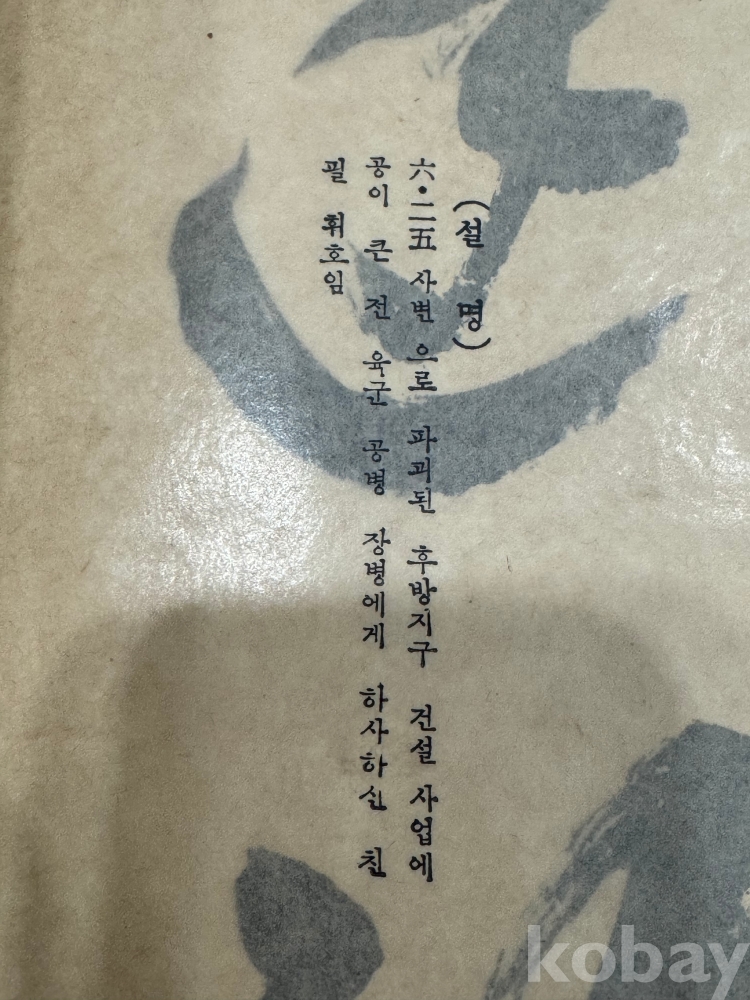 (설 명)
六·二五 사변으로 파괴된 후방지구 건설 사업에
공이 큰 전 육군 공병 장병에게 하사하신 친
필 휘호임
kobay